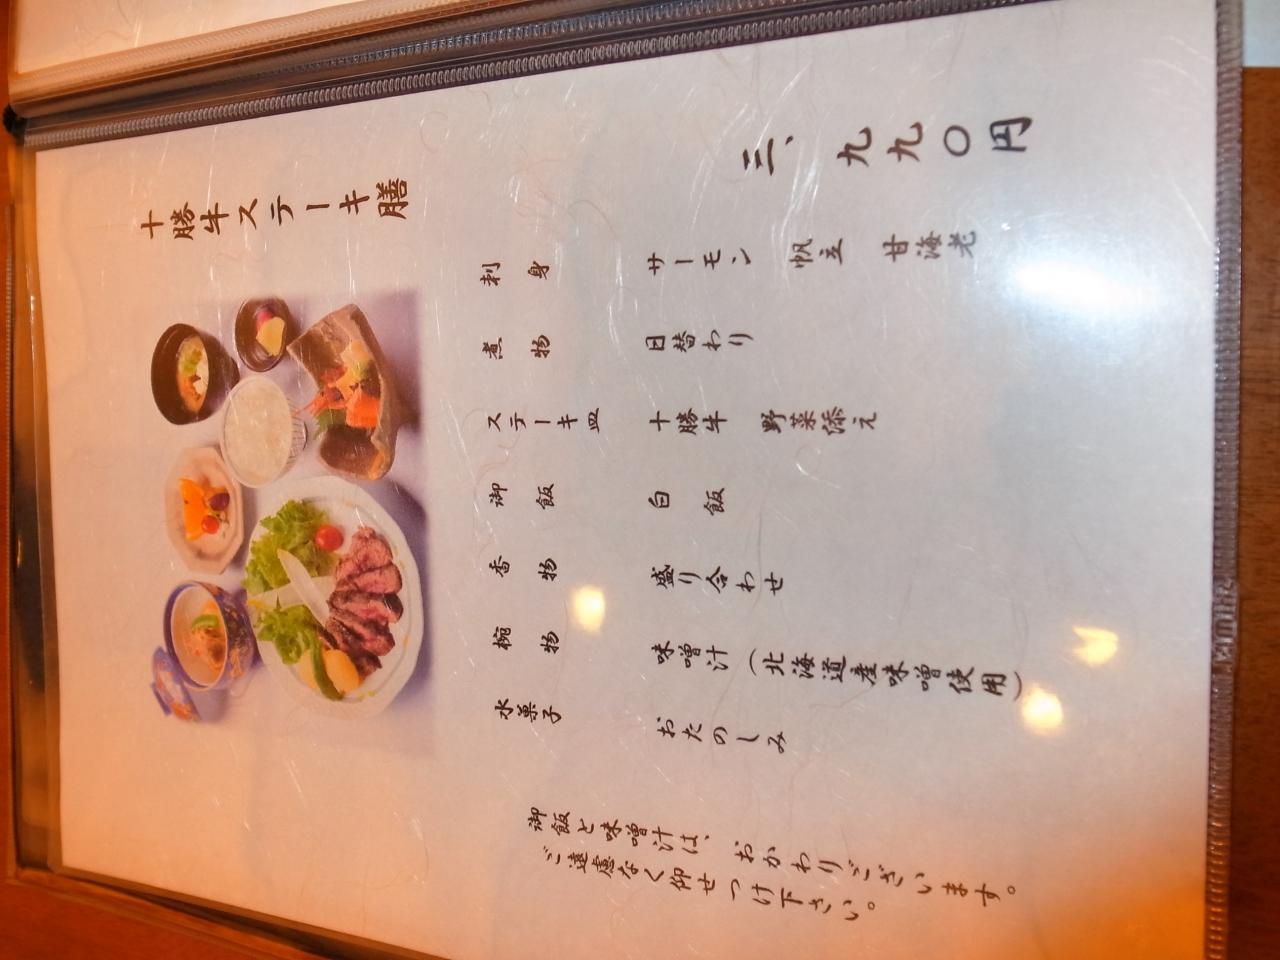 十勝牛ステーキ膳
三、九九〇円
刺身 サーモン 帆立 甘海老
煮物 日替わり
ステーキ皿 十勝牛 野菜添え
御飯 白飯
香物 盛り合わせ
椀物 味噌汁(北海道産味噌使用)
水菓子 おたのしみ
御飯と味噌汁は、おかわりございます。
ご遠慮なく仰せつけ下さい。